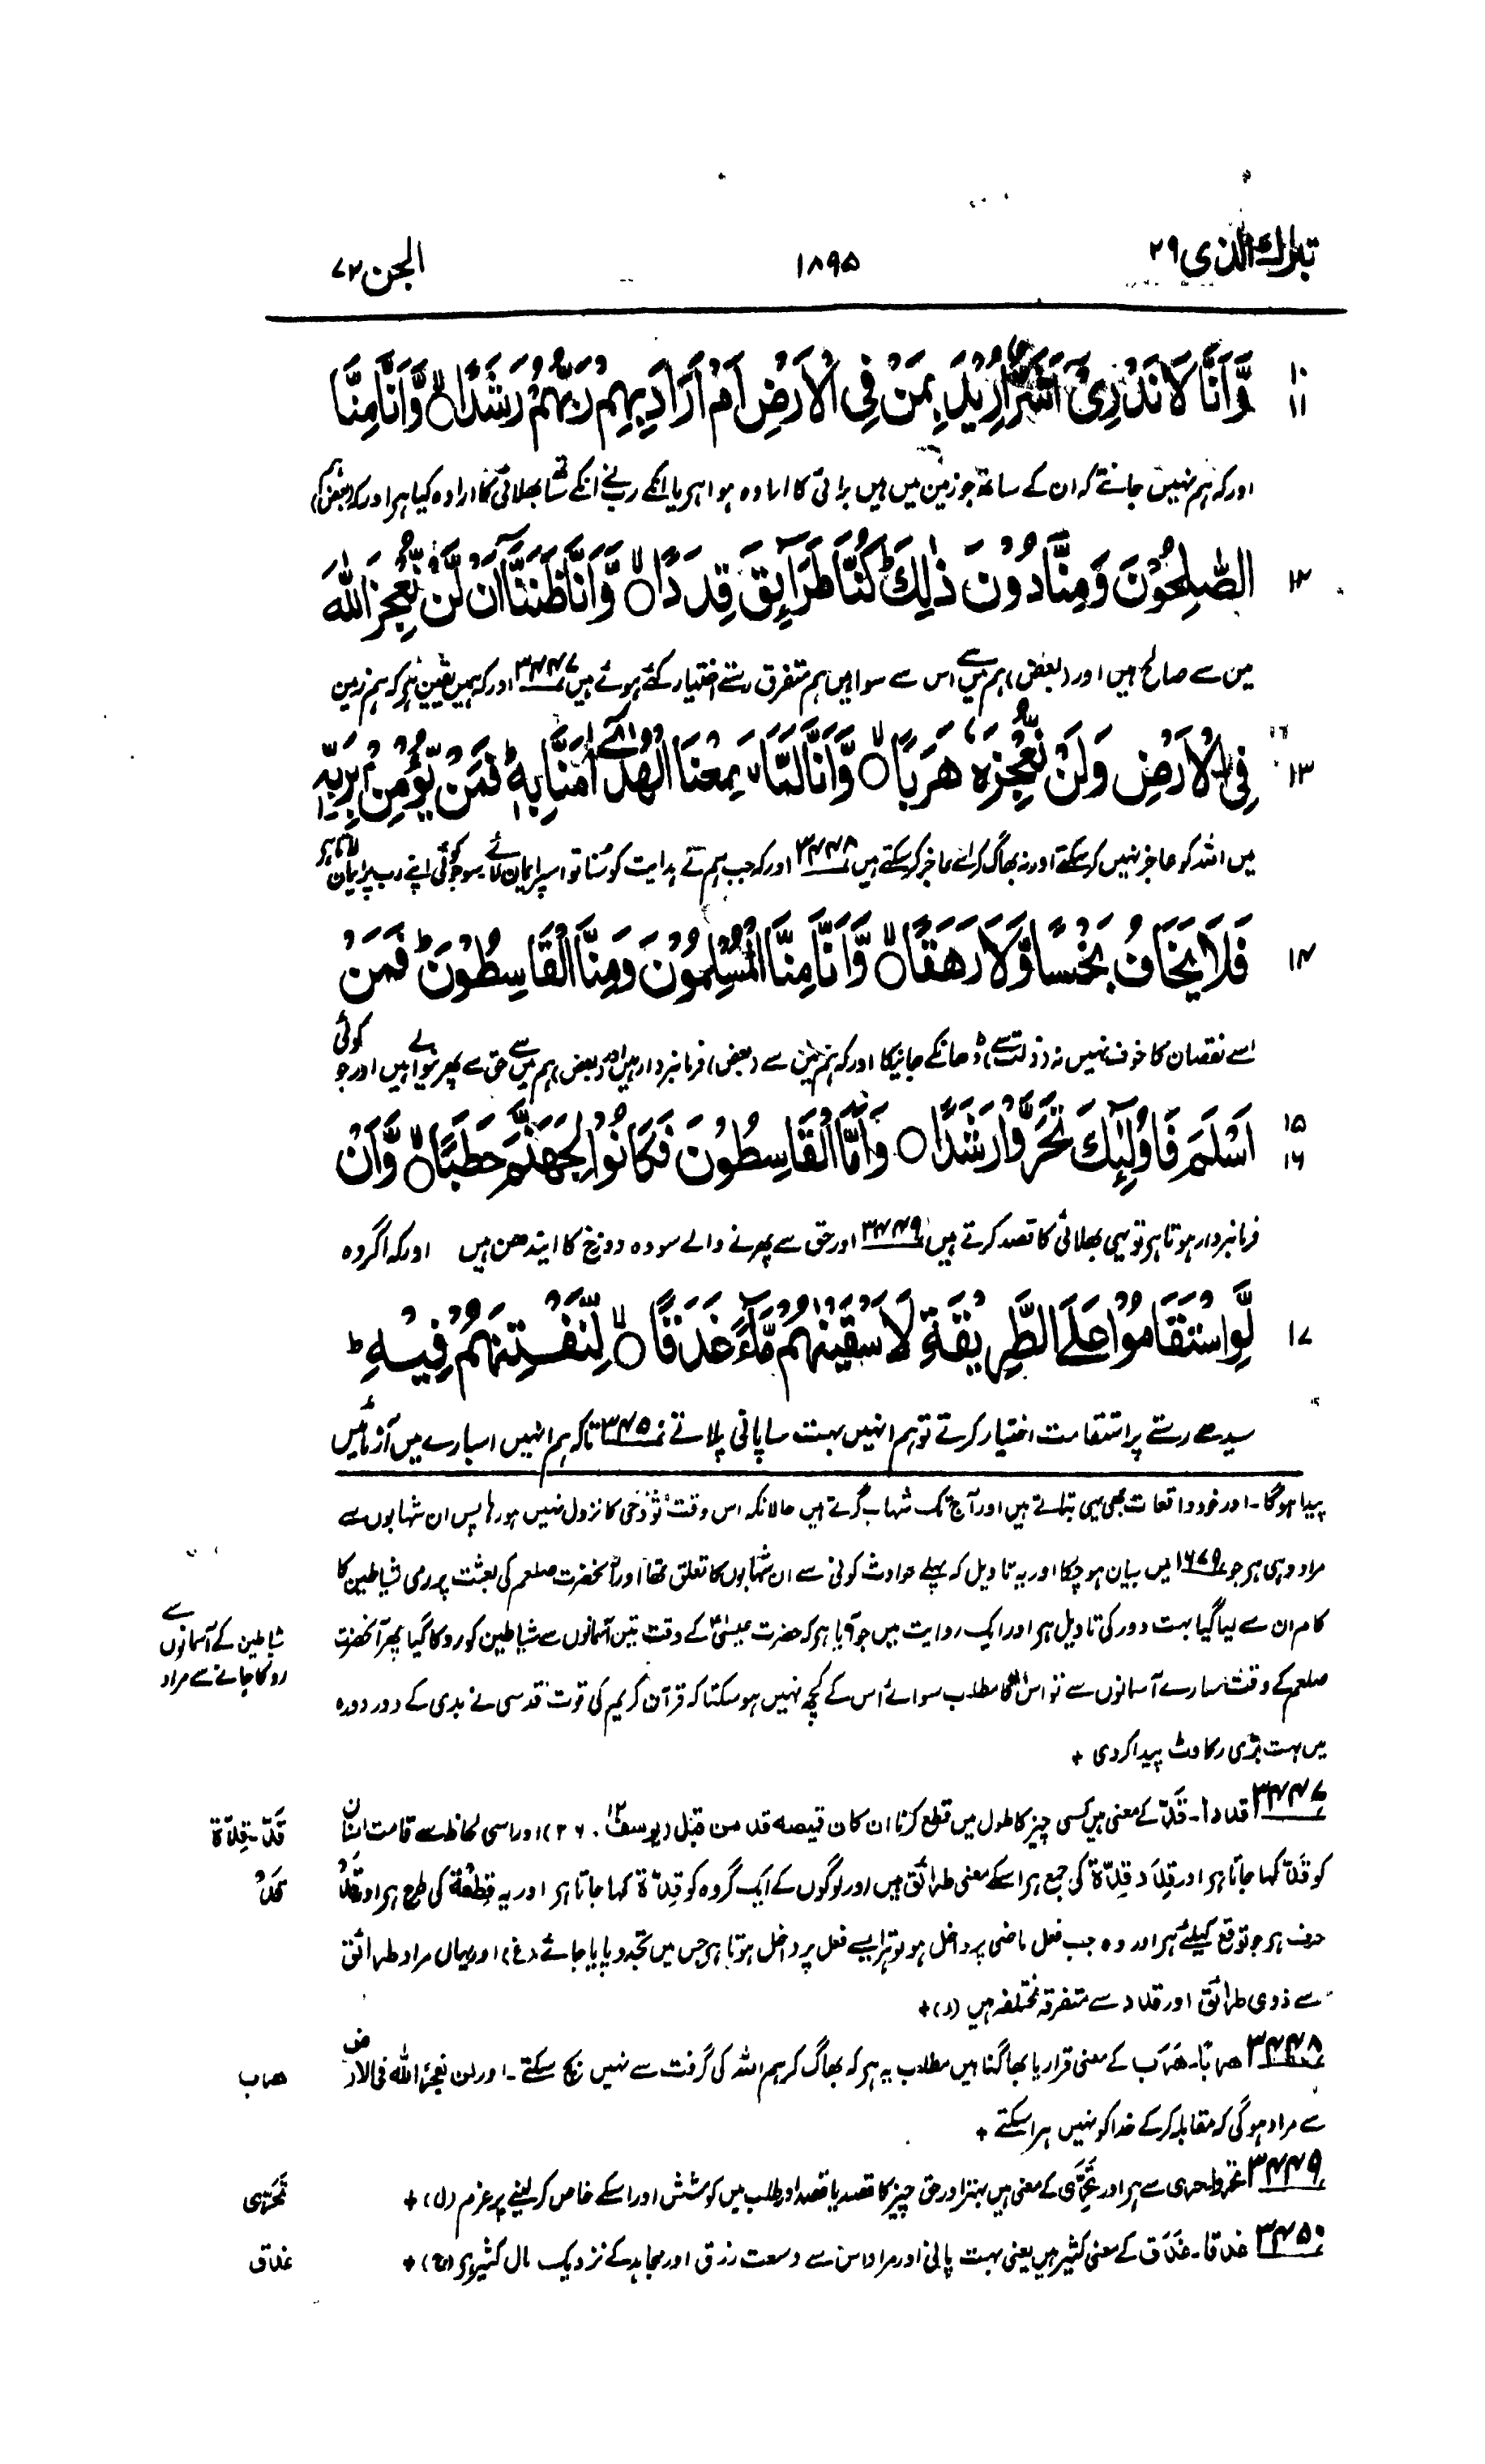 تبارك الذی ۲۹
۱۸۹۵
الجن ۷۲
۱۰
۱۱
وَّاَنَّا لَا نَدْرِیْٓ اَشَرٌّ اُرِیْدَ بِمَنْ فِی الْاَرْضِ اَمْ اَرَادَ بِهِمْ رَبُّهُمْ رَشَدًا ۙ وَّاَنَّا مِنَّا
اور کہ ہم نہیں جانتے کہ ان کے ساتھ جو زمین میں ہیں برائی کا ارادہ ہوا ہے یا انکے رب نے انکے ساتھ بھلائی کا ارادہ کیا ہے اور کہ (بعض) ہم
۱۲
الصّٰلِحُوْنَ وَمِنَّا دُوْنَ ذٰلِكَ ؕ كُنَّا طَرَآئِقَ قِدَدًا ۙ وَّاَنَّا ظَنَنَّآ اَنْ لَّنْ نُّعْجِزَ اللّٰهَ
میں سے صالح ہیں اور (بعض) ہم میں سے اس سے سوا ہیں ہم متفرق رستے اختیار کئے ہوئے ہیں ۳۴۴۷ اور کہ ہمیں یقین ہے کہ ہم زمین
۱۳
فِی الْاَرْضِ وَلَنْ نُّعْجِزَهٗ هَرَبًا ۙ وَّاَنَّا لَمَّا سَمِعْنَا الْهُدٰٓی اٰمَنَّا بِهٖ ؕ فَمَنْ یُّؤْمِنْۢ بِرَبِّهٖ
میں اللہ کو عاجز نہیں کر سکتے اور نہ بھاگ کر اسے عاجز کر سکتے ہیں ۳۴۴۸ اور کہ جب ہم نے ہدایت کو سُنا تو اسپر ایمان لائے سو جو کوئی اپنے رب پر ایمان لاتا ہے
۱۴
فَلَا یَخَافُ بَخْسًا وَّلَا رَهَقًا ۙ وَّاَنَّا مِنَّا الْمُسْلِمُوْنَ وَمِنَّا الْقَاسِطُوْنَ ؕ فَمَنْ
اسے نقصان کا خوف نہیں نہ (ذلت سے) ڈھانکے جانیکا اور کہ ہم میں سے (بعض) فرمانبردار ہیں اور (بعض) ہم میں سے حق سے پھرنیوالے ہیں اور جو کوئی
۱۵
۱۶
اَسْلَمَ فَاُولٰٓئِكَ تَحَرَّوْا رَشَدًا ۝ وَاَمَّا الْقَاسِطُوْنَ فَكَانُوْا لِجَهَنَّمَ حَطَبًا ۙ وَّاَنْ
فرمانبردار ہوتا ہے تو یہی بھلائی کا قصد کرتے ہیں ۳۴۴۹ اور حق سے پھرنے والے سو وہ دوزخ کا ایندھن ہیں اور کہ اگر وہ
۱۷
لَّوِ اسْتَقَامُوْا عَلَی الطَّرِیْقَةِ لَاَسْقَیْنٰهُمْ مَّآءً غَدَقًا ۙ لِّنَفْتِنَهُمْ فِیْهِ ؕ
سیدھے رستے پر استقامت اختیار کرتے تو ہم انہیں بہت سا پانی پلاتے ۳۴۵۰ تاکہ ہم انہیں اسبارے میں آزمائیں
پیدا ہوگا۔ اور خود واقعات بھی یہی بتاتے ہیں اور آج تک شہاب گرتے ہیں حالانکہ اس وقت تو وحی کا نزول نہیں ہو رہا پس ان شہابوں سے
مراد وہی ہے جو ۱۶۷۹ میں بیان ہو چکا اور یہ تاویل کہ پہلے حوادث کونی سے ان شہابوں کا تعلق تھا اور آنحضرت صلعم کی بعثت پر رمی شیاطین کا
کام ان سے لیا گیا بہت دور کی تاویل ہے اور ایک روایت میں جو آیا ہے کہ حضرت عیسیٰؑ کے وقت تین آسمانوں سے شیاطین کو روکا گیا پھر آنحضرت
شیاطین کے آسمانوں سے
روکا جانے سے مراد
صلعم کے وقت سارے آسمانوں سے تو اس کا مطلب سوائے اس کے کچھ نہیں ہو سکتا کہ قرآن کریم کی قوت قدسی نے بدی کے دور دورہ
میں بہت بڑی رکاوٹ پیدا کردی +
۳۴۴۷ قددا۔ قَدّ کے معنی ہیں کسی چیز کا طول میں قطع کرنا ان کان قمیصه قد من قبل (یوسف ۱۲۔ ۲۶) اور اسی لحاظ سے قامت انسان
قَدّ۔ قِدّة
کو قَدّ کہا جاتا ہے اور قِدَد قِدّة کی جمع ہے اسکے معنی طرائق ہیں اور لوگوں کے ایک گروہ کو قِدّة کہا جاتا ہے اور یہ قِطْعَة کی طرح ہے اور قَدْ
قَدْ
حرف ہے جو توقع کیلئے ہے اور وہ جب فعل ماضی پر داخل ہو تو ہر ایسے فعل پر داخل ہوتا ہے جس میں تجدد پایا جائے (غ) اور یہاں مراد طرائق
سے ذوی طرائق اور قدد سے متفرقہ مختلفہ ہیں (ر) +
۳۴۴۸ هربًا۔ هَرَب کے معنی فرار یا بھاگنا ہیں مطلب یہ ہے کہ بھاگ کر ہم اللہ کی گرفت سے نہیں بچ سکتے۔ اور لن نعجز الله فی الارض
هرب
سے مراد ہوگی کہ مقابلہ کرکے خدا کو نہیں ہرا سکتے +
۳۴۴۹ تحروا حری سے ہے اور تَحَرِّی کے معنی ہیں بہتر اور حق چیز کا قصد یا قصد اور طلب میں کوشش اور اسکے خاص کرلینے پر عزم (ل) +
تَحَرّی
۳۴۵۰ غدقا۔ غَدَق کے معنی کثیر ہیں یعنی بہت پانی اور مراد اس سے وسعت رزق اور مجاہد کے نزدیک مال کثیر ہے (ج) +
غدق